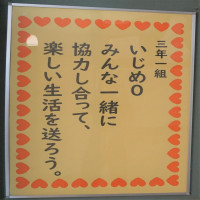 三年一組
いじめ0
みんな一緒に
協力し合って、
楽しい生活を送ろう。